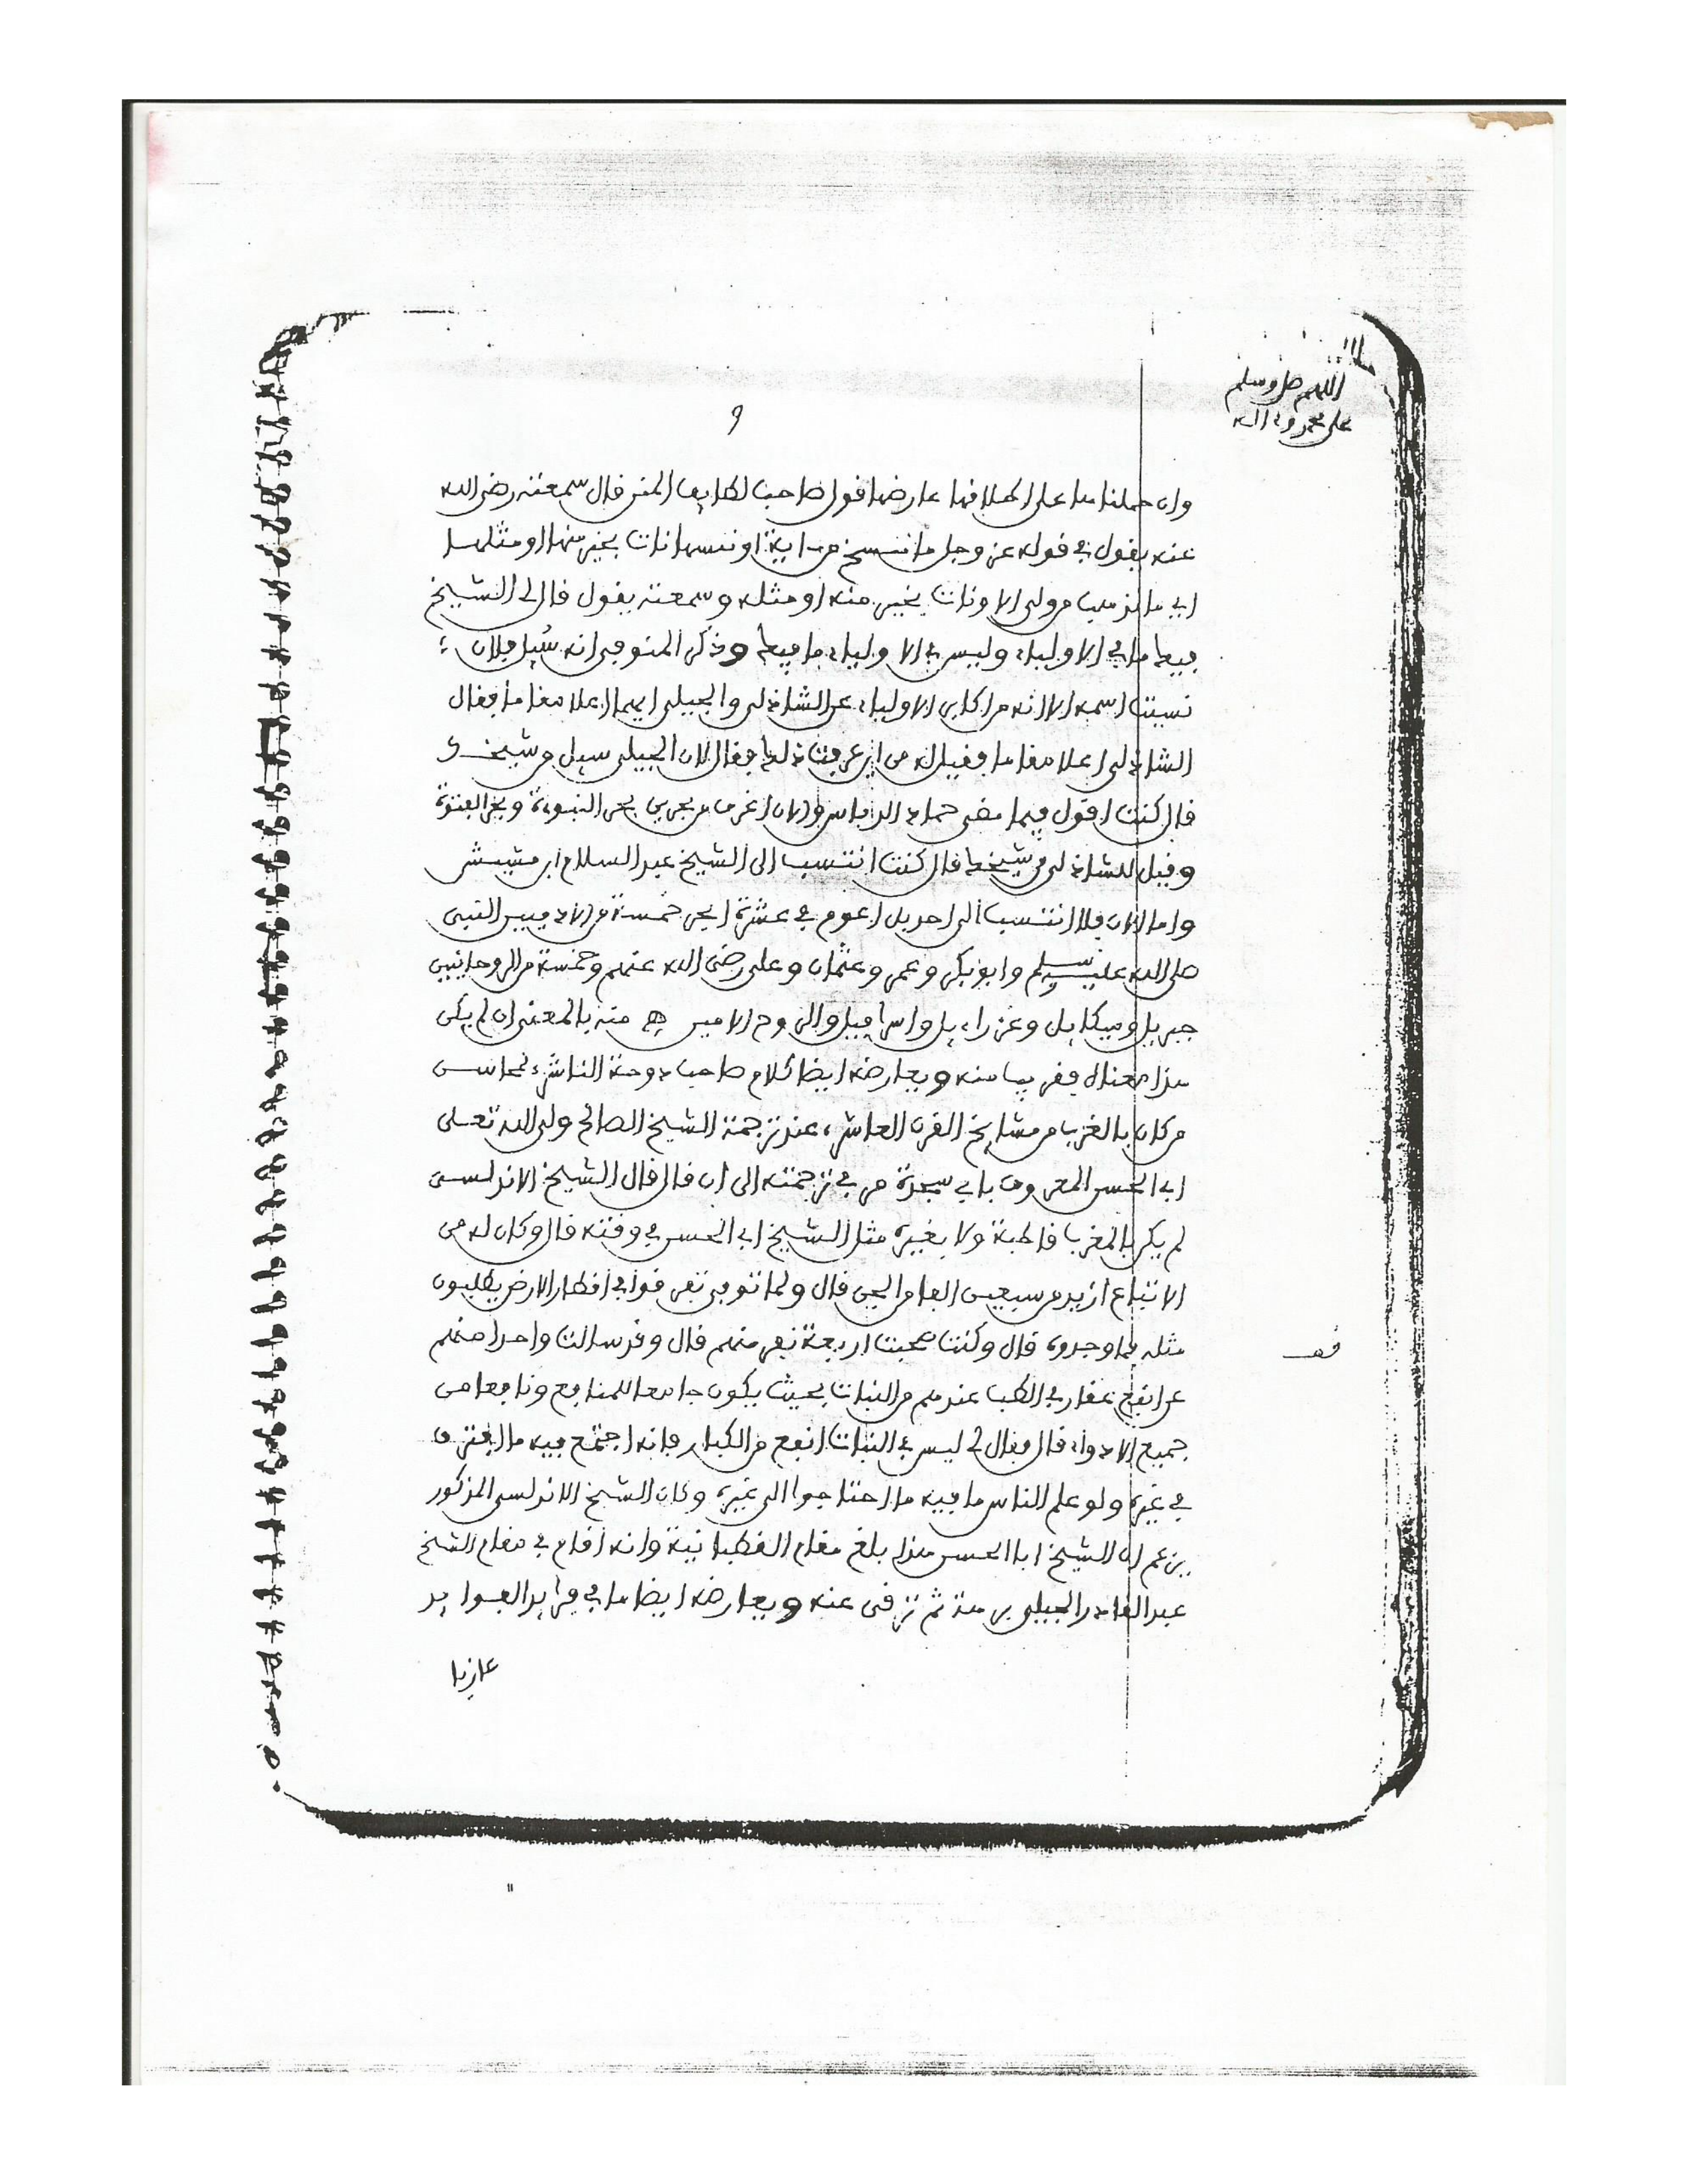 اللهم صل وسلم
على محمد وءاله
9
وان حملناها على اطلاقها عارضها قول صاحب لطايف المنن قال سمعته رضي الله
عنه يقول في قوله عز وجل ما ننسخ من ءاية او ننسها نات بخير منها او مثلها
اي ما نذهب من ولي الا ونات بخير منه او مثله وسمعته يقول قال لي الشيخ
فيك ما في الاولياء وليس في الاولياء ما فيك وذكر المنوفي انه سُيل فلان
نسيت اسمه الا انه من اكابر الاولياء عن الشاذلي والجيلي ايهما اعلا مقاما فقال
الشاذلي اعلا مقاما فقيل له من اين عرفت ذلك فقال لان الجيلي سيل من شيخك
قال كنت اقول فيما مضى حماد الدباس والان اغرف من بحرين بحر النبوة وبحر الفتوة
وقيل للشاذلي من شيخك قال كنت انتسب الى الشيخ عبد السلام ابن مشيش
واما الان فلا انتسب الى احد بل اعوم في عشرة ابحر خمسة من الادميين النبي
صلى الله عليه وسلم وابو بكر وعمر وعثمان وعلي رضي الله عنهم وخمسة من الروحانيين
جبريل وميكايل وعزراءيل واسرافيل والروح الامين هـ منه بالمعنى ان لم يكن
هذا معناه فقريب منه ويعارضه ايضا كلام صاحب دوحة الناشر لمحاسن
من كان بالغرب من مشايخ القرن العاشر، عند ترجمة الشيخ الصالح ولي الله تعلى
ابي الحسن المعروف بابي سجدة مر في ترجمته الى ان قال قال الشيخ الاندلسي
لم يكن بالمغرب قاطبة ولا بغيره مثل الشيخ ابي الحسن في وقته قال وكان له من
الاتباع ازيد من سبعين الفا من الجن قال ولما توفي تفرقوا في اقطار الارض يطلبون
مثله فما وجدوه قال وكنت صحبت اربعة نفر منهم قال وقد سالت واحدا منهم
عن انفع عقار في الطب عندهم من النبات بحيث يكون جامعا للمنافع ونافعا من
جميع الادواء قال فقال لي ليس في النبات انفع من الكبار فانه اجتمع فيه ما افترق
في غيره ولو علم الناس ما فيه ما احتاجوا الى غيره وكان الشيخ الاندلسي المذكور
يزعم ان الشيخ ابا الحسن هذا بلغ مقام القطبانية وانه اقام في مقام الشيخ
عبد القادر الجيلي برهة ثم ترقى عنه ويعارضه ايضا ما في فرايد الفوايد
عازيا
قف